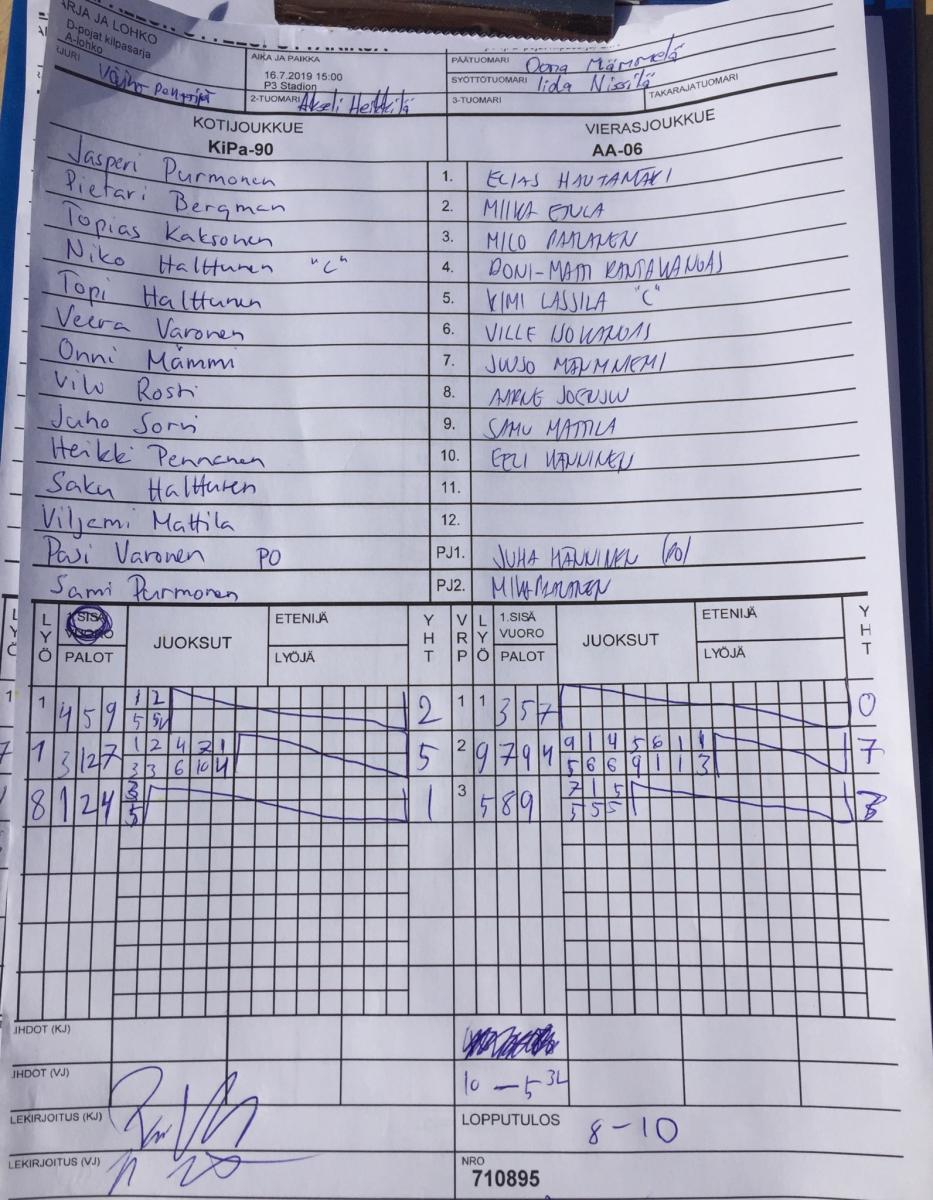 ARJA JA LOHKO
D-pojat kilpasarja
A-lohko
JURI
AIKA JA PAIKKA
16.7.2019 15:00
P3 Stadion
2-TUOMARI Akseli Heikkilä
PÄÄTUOMARI Oona Mämmelä
SYÖTTÖTUOMARI Iida Nissilä
3-TUOMARI
TAKARAJATUOMARI
KOTIJOUKKUE
KiPa-90
VIERASJOUKKUE
AA-06
Jasperi Purmonen 1. ELIAS HAUTAMÄKI
Pietari Bergman 2. MIIKA
Topias Kaksonen 3. MILO PAANANEN
Niko Halttunen "C" 4. RONI-MATTI RANTAKANGAS
Topi Halttunen 5. KIMI LASSILA "C"
Veera Varonen 6. VILLE ISOKANGAS
Onni Mämmi 7. JUUSO
Vilu Rosti 8. AARNE
Juho Sorvi 9. SAMU MATTILA
Heikki Pennanen 10. EELI HÄNNINEN
Saku Halttunen 11.
Viljami Mattila 12.
Pasi Varonen PO PJ1. JUHA HÄNNINEN (PO)
Sami Purmonen PJ2. MIKA PAANANEN
LYÖ SISÄ VUORO PALOT JUOKSUT ETENIJÄ LYÖJÄ YHT VRP LYÖ 1.SISÄ VUORO PALOT JUOKSUT ETENIJÄ LYÖJÄ YHT
1 4 5 9 1 2 2 1 1 3 5 7 0
5 5
1 3 12 7 1 2 4 7 1 5 2 9 7 9 4 9 1 4 5 6 1 1 7
3 3 6 10 4 5 6 6 9 1 1 3
8 1 2 4 3 1 3 5 8 9 7 1 5 3
5 5 5 5
JHDOT (KJ)
JHDOT (VJ) 10 - 5
LEKIRJOITUS (KJ) LOPPUTULOS 8-10
LEKIRJOITUS (VJ) NRO
710895